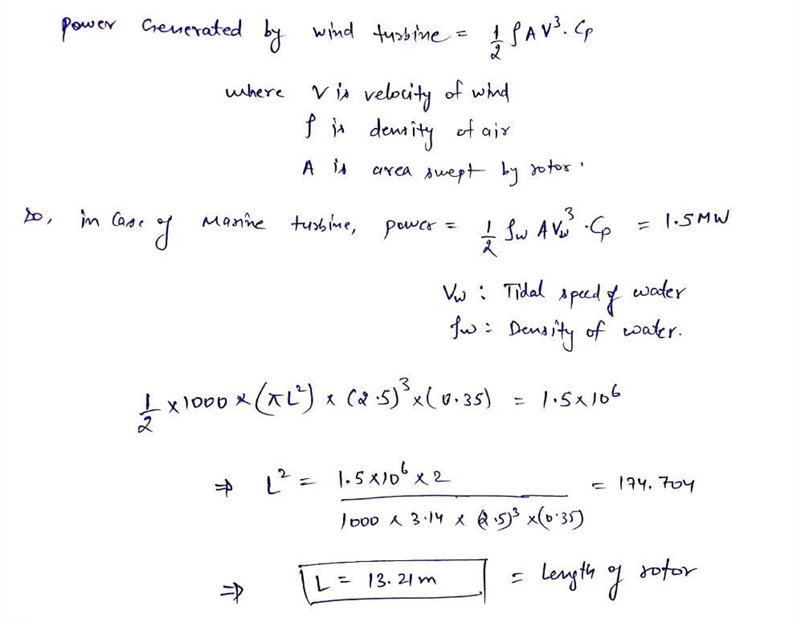 power Generated by wind turbine = 1/2 ρ A V³ · Cp
where V is velocity of wind
ρ is density of air
A is area swept by rotor.
So, in Case of Marine turbine, power = 1/2 ρw A Vw³ · Cp = 1.5 MW
Vw : Tidal speed of water
ρw : Density of water.
1/2 × 1000 × (πL²) × (2.5)³ × (0.35) = 1.5 × 10⁶
⇒ L² = 1.5 × 10⁶ × 2 / 1000 × 3.14 × (2.5)³ × (0.35) = 174.704
⇒ L = 13.21 m = Length of rotor